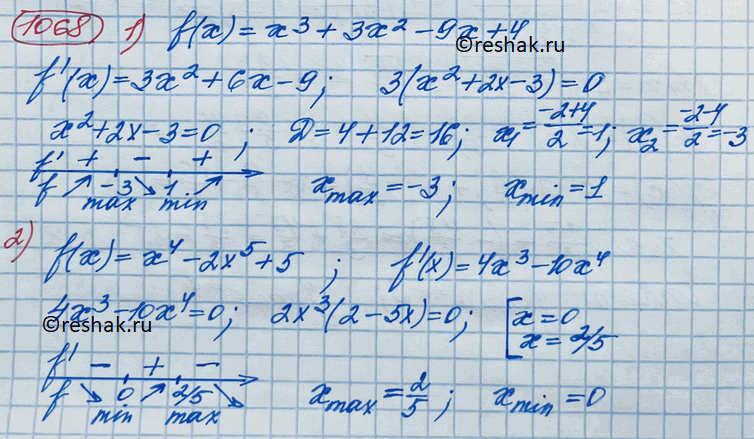 1068 1) f(x) = x³ + 3x² - 9x + 4
©reshak.ru
f'(x) = 3x² + 6x - 9; 3(x² + 2x - 3) = 0
x² + 2x - 3 = 0; D = 4 + 12 = 16; x₁ = (-2+4)/2 = 1; x₂ = (-2-4)/2 = -3
f' + - +
f ↗ -3 ↘ 1 ↗
max min x_max = -3; x_min = 1
2) f(x) = x⁴ - 2x⁵ + 5; f'(x) = 4x³ - 10x⁴
4x³ - 10x⁴ = 0; 2x³(2 - 5x) = 0; [x = 0
x = 2/5
©reshak.ru
f' - + -
f ↘ 0 ↗ 2/5 ↘
min max x_max = 2/5; x_min = 0